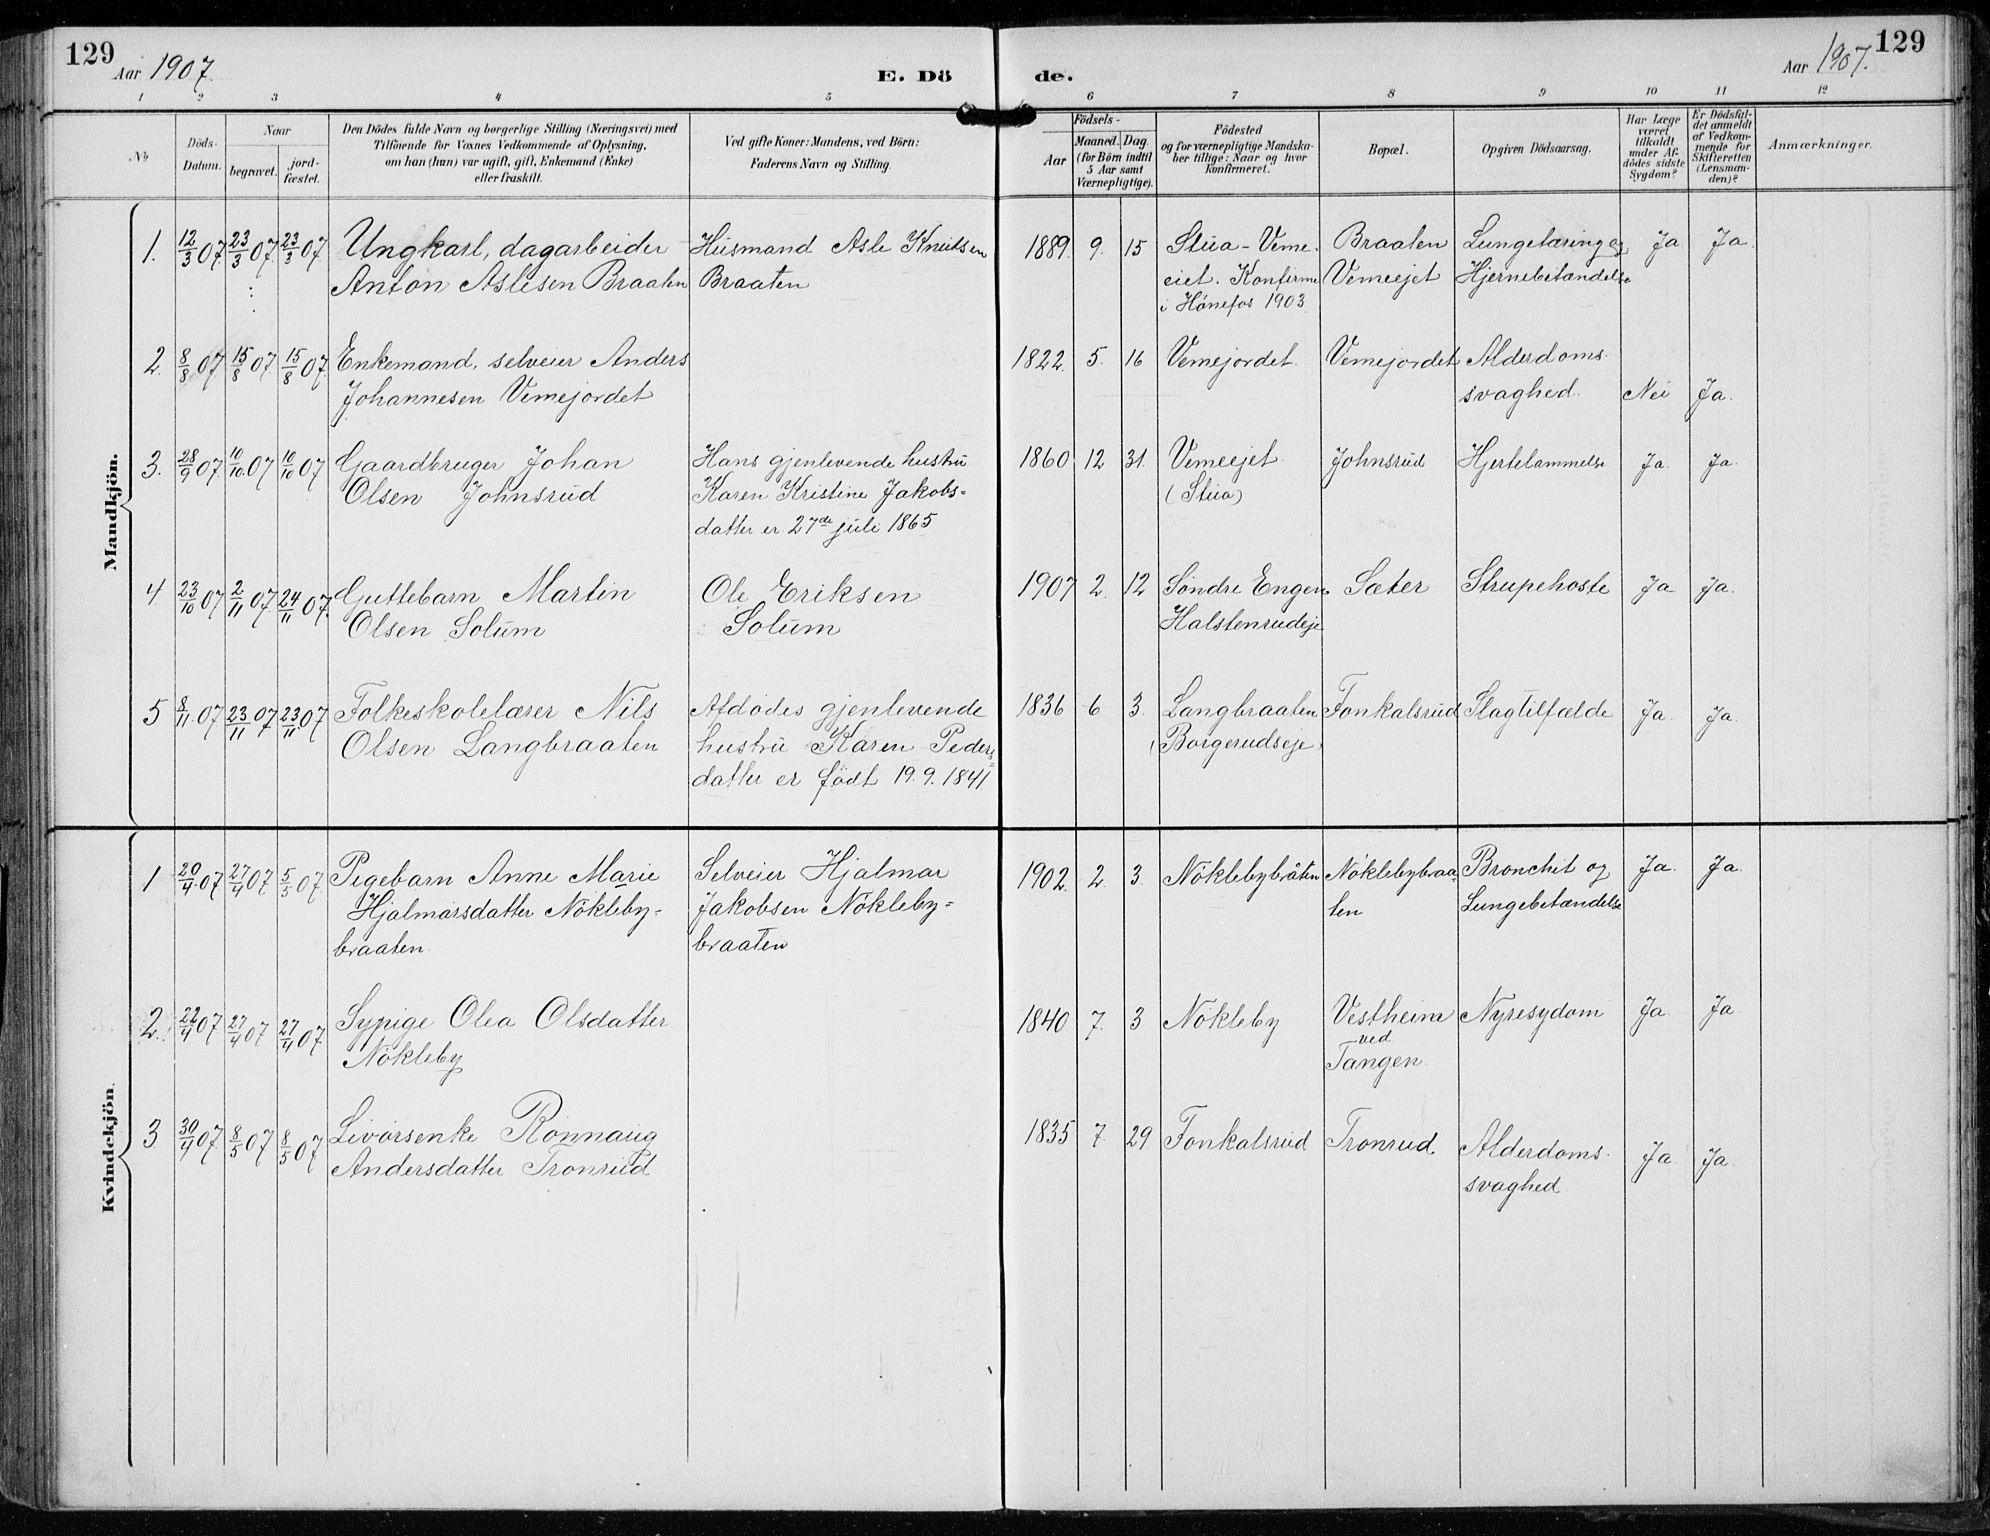 129
Aar 1907.
E. Dö
de.
Aar 1907.
129
1 2 3 4 5 6 7 8 9 10 11 12
No
Döds-
Datum.
Naar
begravet.
jord-
fæstet.
Den Dödes fulde Navn og borgerlige Stilling (Næringsvei) med
Tilföiende for Voxnes Vedkommende af Oplysning,
om han (hun) var ugift, gift, Enkemand (Enke)
eller fraskilt.
Ved gifte Koner: Mandens, ved Börn:
Faderens Navn og Stilling.
Födsels-
Aar
Maaned. Dag.
(for Börn indtil
5 Aar samt
Værnepligtige).
Födested
og for værnepligtige Mandska-
ber tillige: Naar og hvor
konfirmeret.
Bopæl.
Opgiven Dödsaarsag.
Har Læge
været
tilkaldt
under Af-
dödes sidste
Sygdom?
Er Dödsfal-
det anmeldt
af Vedkom-
mende for
Skifteretten
(Lensman-
den)?
Anmærkninger.
Mandkjön.
1. 12/3 07. 23/3 07. 23/3 07. Ungkarl, dagarbeider Husmand Asle Knutsen 1889. 9. 15 Stua - Veme- Braaten Lungetæring og Ja Ja
Anton Aslesen Braaten Braaten eiet. Konfirme Vemeejet Hjernebetændelse
i Hønefos 1903
2. 8/8 07. 15/8 07. 15/8 07. Enkemand, selveier Anders 1822. 5. 16 Vemejordet. Vemejordet Alderdoms-
Johannesen Vemejordet svaghed. Nei Ja.
3. 28/9 07. 10/10 07 10/10 07 Gaardbruger Johan Hans gjenlevende hustru 1860 12 31. Vemeejet Johnsrud Hjertelammelse Ja. Ja.
Olsen Johnsrud Karen Kristine Jakobs- (Stua)
datter er 27de juli 1865
4. 23/10 07 2/11 07 24/11 07. Guttebarn Martin Ole Eriksen 1907 2. 12 Søndre Engen Sæter Strupehoste Ja Ja.
Olsen Solum Solum Halstenrudeje
5 8/11 07 23/11 07 23/11 07 Folkeskolelærer Nils Afdødes gjenlevende 1836 6 3. Langbraaten Fonkalsrud Slagtilfælde Ja. Ja.
Olsen Langbraaten hustru Karen Peders- (Borgerudseje)
datter er født 19.9.1841
Kvindekjön.
1 20/4 07 27/4 07 5/5 07 Pigebarn Anne Marie Selveier Hjalmar 1902. 2. 3. Nøklebybråten Nøklebybraa- Bronchit og Ja. Ja.
Hjalmarsdatter Nøkleby- Jakobsen Nøkleby- ten Lungebetændelse
braaten. braaten
2. 22/4 07 27/4 07 27/4 07 Sypige Olea Olsdatter 1840 7. 3 Nøkleby Vestheim Nyresydom Ja Ja
Nøkleby ved
Tangen.
3 30/4 07 8/5 07 8/5 07 Livørsenke Rønnaug 1835 7. 29 Fonkalsrud Tronrud. Alderdoms- Ja Ja.
Andersdatter Tronrud svaghed